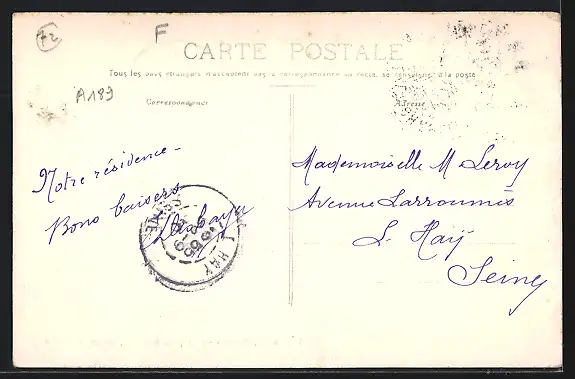 72
F
CARTE POSTALE
Tous les pays étrangers n'acceptent pas la correspondance au recto, se renseigner à la poste
A189
Correspondance
Adresse
Notre résidence -
Bons baisers
Mademoiselle M Leroy
Avenue Larroumès
L. Haÿ
Seine
HAY
SEINE